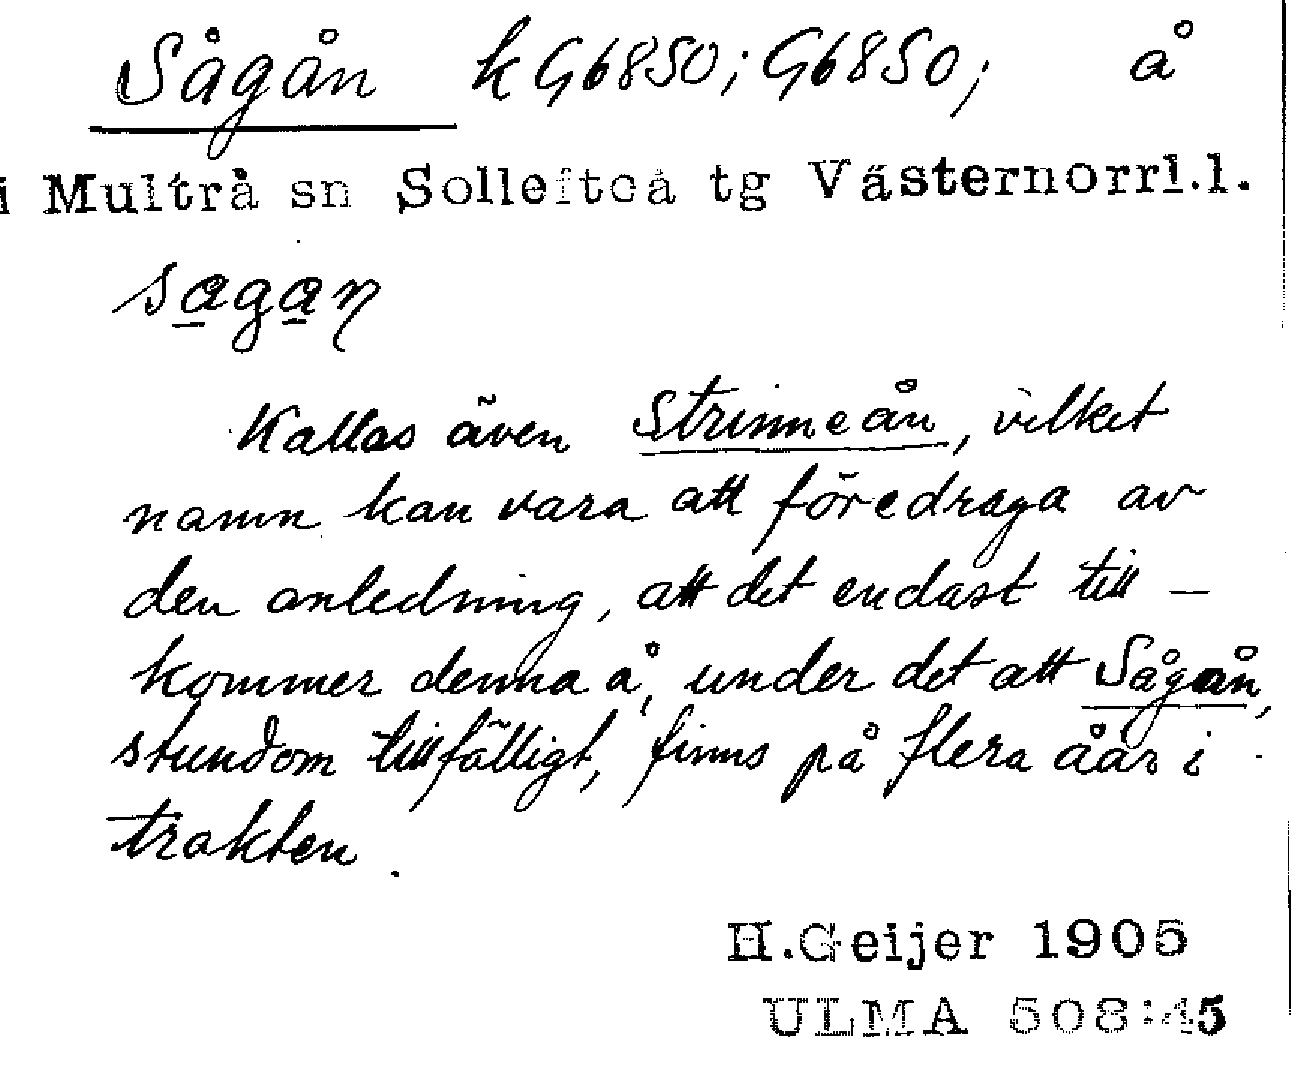 Sågån k G6850; G6850; å
i Multrå sn Sollefteå tg Västernorrl.l.
Kallas även Strinneån, vilket
namn kan vara att föredraga av
den anledning, att det endast till-
kommer denna å, under det att Sågån,
stundom tillfälligt, finns på flera åar i
trakten.
H.Geijer 1905
ULMA 508:45